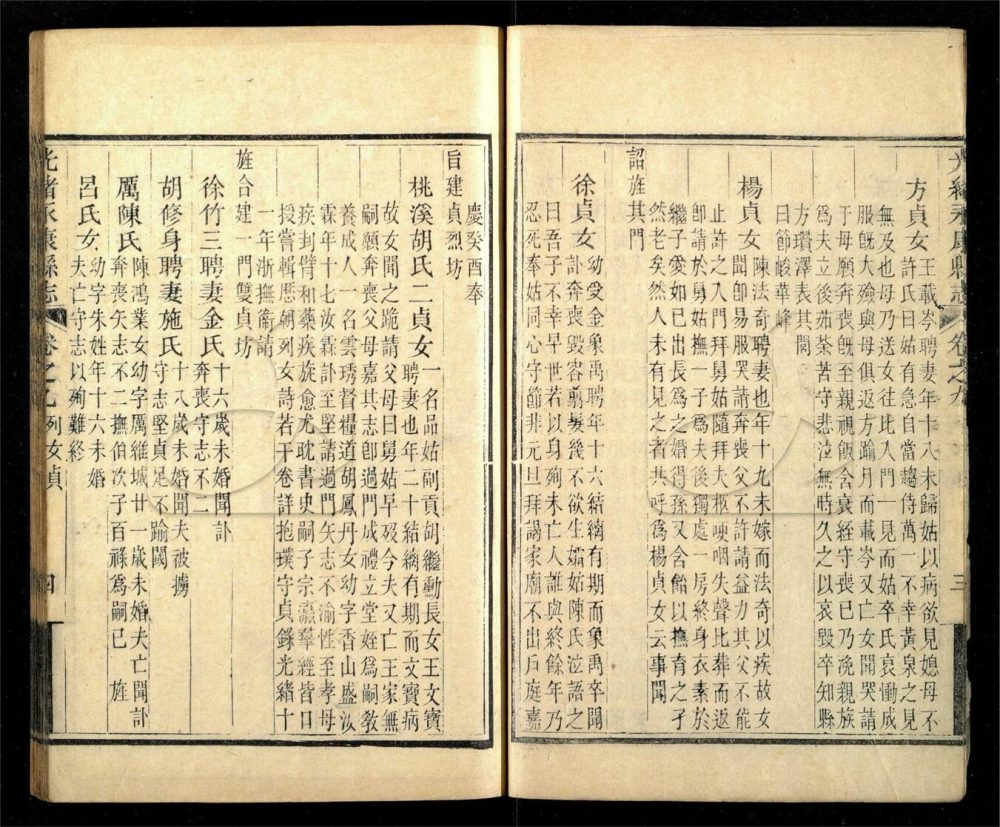 光緒永康縣志 卷之九 三
方貞女王載岑聘妻年十八未歸姑以病欲見媳母不
許氏曰姑有急自當趨侍萬一不幸黃泉之見
無及也母乃送女往比入門一見而姑卒氏哀慟成
服旣大殮與母俱返方踰月而載岑又亡女聞哭請
于母願奔喪旣至親視飯含衰絰守喪已乃浼親族
爲夫立後茹荼苦守悲泣無時久之以哀毀卒知縣
方瓚澤表其閭
曰節峻華峰
楊貞女陳法奇聘妻也年十九未嫁而法奇以疾故女
聞卽易服哭請奔喪父不許請益力其父不能
止許之入門拜舅姑隨拜夫柩哽咽失聲比葬而返
卽請於舅姑撫一子爲夫後獨處一房終身衣素於
繼子愛如已出長爲之婚得孫又含飴以撫育之孑
然老矣然人未有見之者共呼爲楊貞女云事聞
詔旌其門
徐貞女幼受金象禹聘年十六結縭有期而象禹卒聞
訃奔喪毀容翦髮幾不欲生孀姑陳氏泣語之
曰吾子不幸早世若以身殉未亡人誰與終餘年乃
忍死奉姑同心守節非元旦拜謁家廟不出戶庭嘉
慶癸酉奉
旨建貞烈坊
桃溪胡氏二貞女一名品姑副貢胡繼勳長女王文寶
聘妻也年二十結縭有期而文寶病
故女聞之跪請父母曰舅姑早歿今夫又亡王家無
嗣願奔喪父母嘉其志卽過門成禮立堂姪爲嗣敎
養成人一名雲琇督糧道胡鳳丹女幼字香山盛汝
霖年十七汝霖訃至堅請過門矢志不渝性至孝母
疾刲臂和藥疾旋愈尤耽書史嗣子宗瀛羣經皆口
授嘗輯歷朝列女詩若干卷詳抱璞守貞錄光緒十
一年浙撫衞請
旌合建一門雙貞坊
徐竹三聘妻金氏十六歲未婚聞訃
奔喪守志不二
胡修身聘妻施氏十八歲未婚聞夫被擄
守志堅貞足不踰閾
厲陳氏陳鴻業女幼字厲維城廿一歲未婚夫亡聞訃
奔喪矢志不二撫伯次子百祿爲嗣已 旌
呂氏女幼字朱姓年十六未婚
夫亡守志以殉難終
光緒永康縣志 卷之九 列女貞 四